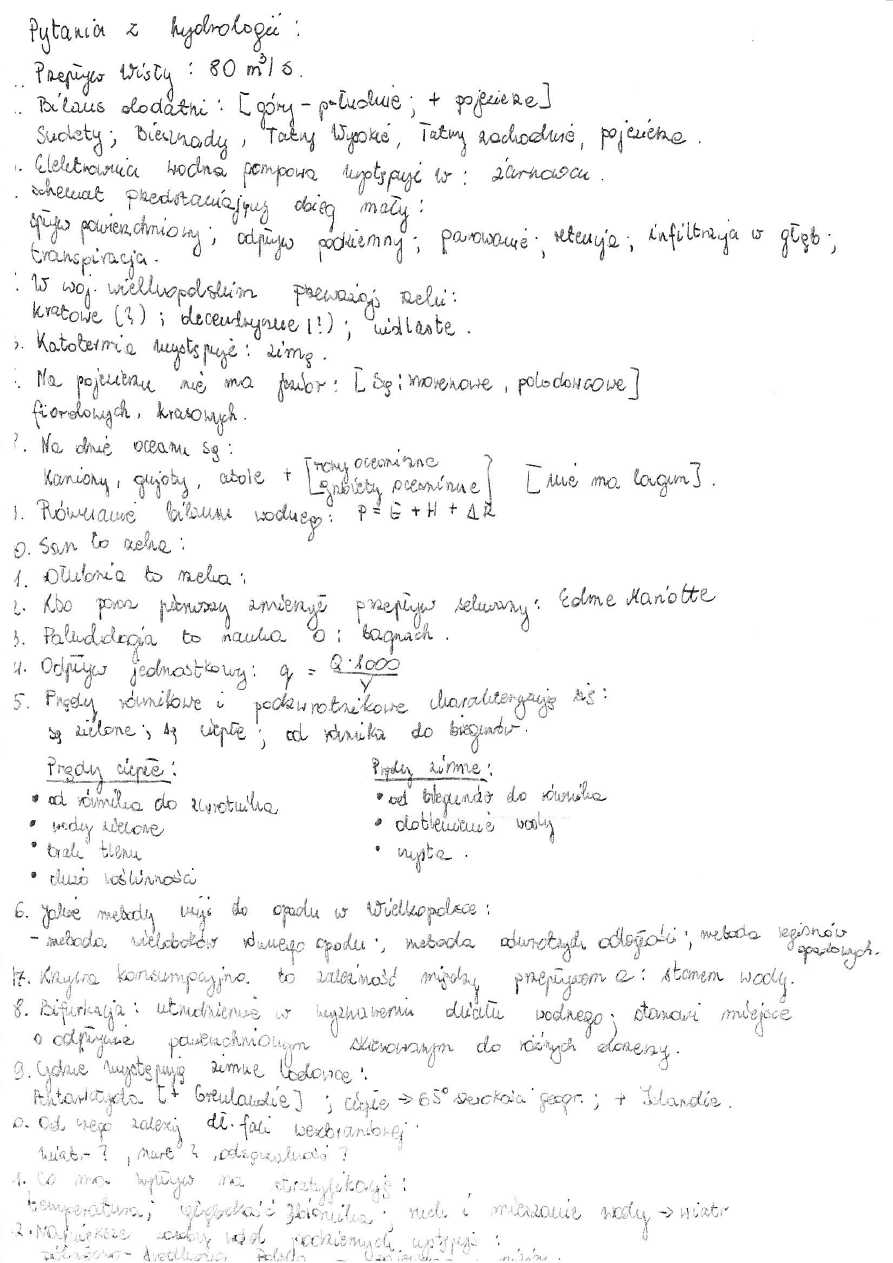 Pytania z hydrologii:
Przepływ Wisły: 80 m³/s.
Bilans dodatni: [góry - południe; + pojezierze]
Sudety; Bieszczady, Tatry Wysokie, Tatry zachodnie, pojezierze.
Elektrownia wodna pompowa występuje w: żarnowcu.
schemat przedstawiający obieg mały:
spływ powierzchniowy; odpływ podziemny; parowanie; retencja; infiltracja w głąb;
transpiracja.
W woj. wielkopolskim przeważają rzeki:
kratowe (?); decendryczne (!); widlaste.
Katotermia występuje: zimą.
Na pojezierzu nie ma jezior: [Są: morenowe, polodowcowe]
fiordowych, krasowych.
Na dnie oceanu są:
Kaniony, gujoty, atole + [rowy oceaniczne
grzbiety oceaniczne] [nie ma lagun].
Równanie bilansu wodnego: P = E + H + ΔR
0. San to rzeka:
1. Dłubnia to rzeka:
2. Kto poraz pierwszy zmierzył przepływ sekwany: Edme Mariotte
3. Paludologia to nauka o: bagnach.
4. Odpływ jednostkowy: q = Q·1000
5. Prądy równikowe i podzwrotnikowe charakteryzują się:
są zielone; są ciepłe; od równika do biegunów.
Prądy ciepłe: Prądy zimne:
• od równika do zwrotnika • od biegunów do równika
• wody zielone • dotlenienie wody
• brak tlenu • czysta.
• dużo roślinności
6. Jakie metody użyć do opadu w Wielkopolsce:
- metoda wieloboków równego opadu; metoda odwrotnych odległości; metoda regionów
opadowych.
17. Krzywa konsumpcyjna to zależność między przepływem a: stanem wody.
8. Bifurkacja: utrudnienie w wyznaczeniu działu wodnego; stanowi miejsce
o odpływie powierzchniowym skierowanym do różnych zlewni.
9. Gdzie występują zimne lodowce:
Antarktyda [+ Grenlandie]; ciepłe → 65° szerokości geogr.; + Islandie.
0. Od czego zależy dł. fali wezbraniowej
wiatr ?, nurt ?,
1. Co ma wpływ na stratyfikację:
temperatura; głębokość zbiornika; ruch i mieszanie wody → wiatr
2. Największe zasoby wód podziemnych występują:
północno-środkowa Polska